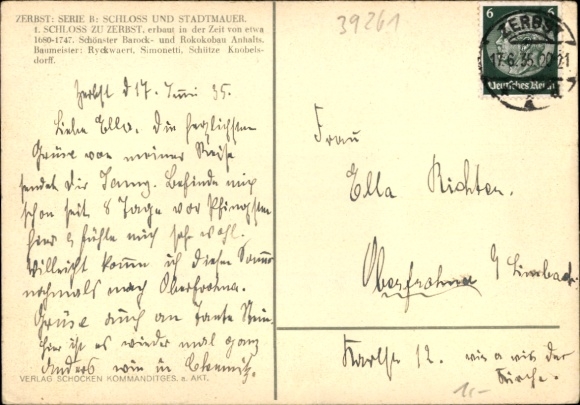 ZERBST: SERIE B: SCHLOSS UND STADTMAUER.
1. SCHLOSS ZU ZERBST, erbaut in der Zeit von etwa
1680-1747. Schönster Barock- und Rokokobau Anhalts.
Baumeister: Ryckwaert, Simonetti, Schütze Knobels-
dorff.
39261
6 6
ZERBST
17.6.35.
Deutsches Reich
Zerbst d 17. Juni 35.
Liebe Ella. Die herzlichsten
Grüße von meiner Reise
sendet Dir Befinde mich
schon seit 8 Tage vor Pfingsten
hier & fühle mich sehr wohl.
Villeicht komme ich diesen Sommer
nochmals nach Oberfrohna.
Grüße auch an Tante
hier ist es wieder mal ganz
anders wie in Chemnitz.
Frau
Ella Richter.
Oberfrohna b/ Limbach
Karlstr 12. vis a vis der
Kirche.
1.-
VERLAG SCHOCKEN KOMMANDITGES. a. AKT.